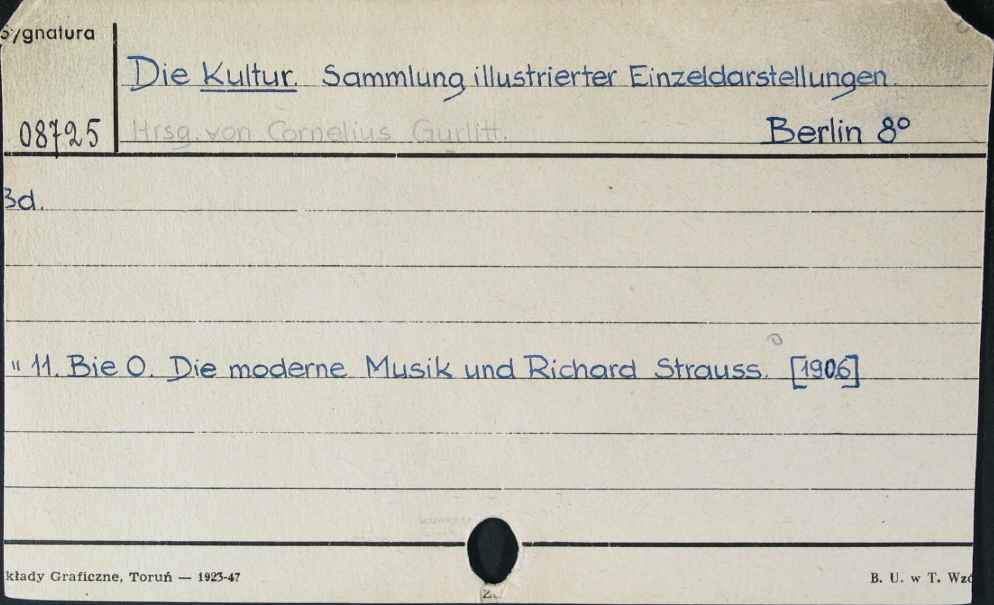 Sygnatura
Die Kultur. Sammlung illustrierter Einzeldarstellungen
08725 Hrsg. von Cornelius Gurlitt. Berlin 8°
Bd.
" 11. Bie O. Die moderne Musik und Richard Strauss. [1906]
kłady Graficzne, Toruń — 1923-47 B. U. w T. Wzó